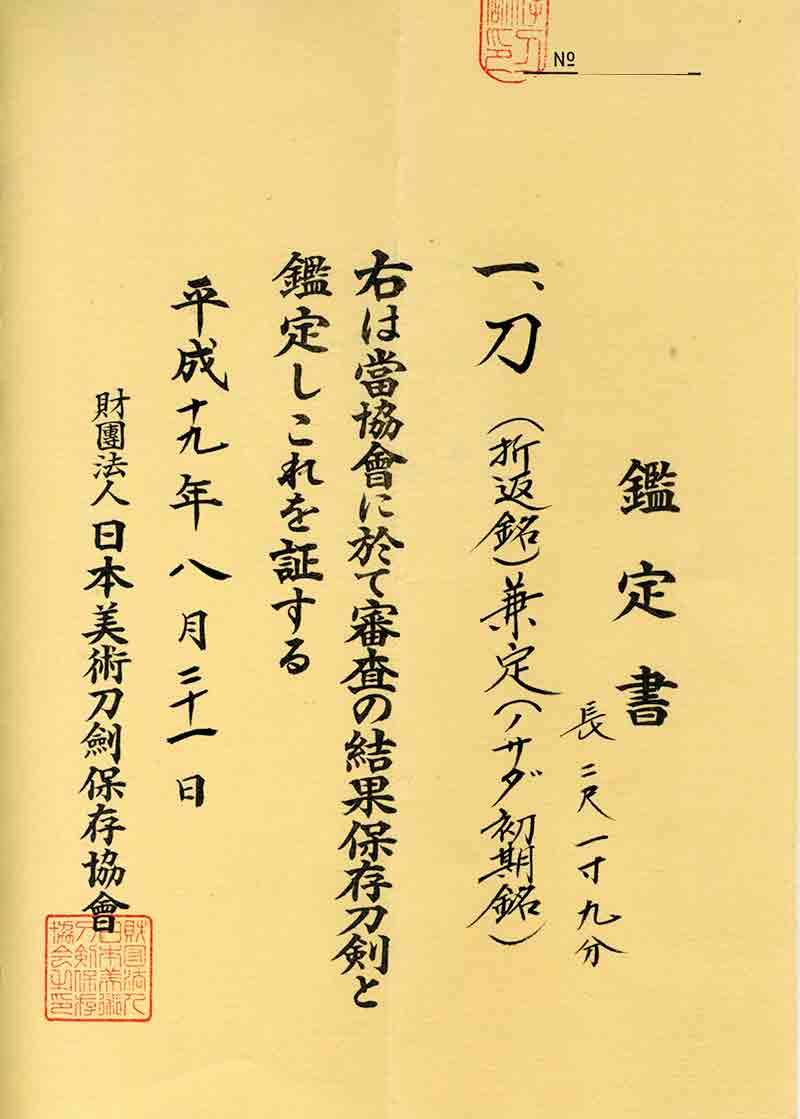 No
鑑定書
長二尺一寸九分
一、刀（折返銘）兼定（ノサダ初期銘）
右は當協會に於て審査の結果保存刀剣と
鑑定しこれを証する
平成十九年八月二十一日
財團法人日本美術刀劍保存協會
財団法人
日本美術
刀剣保存
協会之印